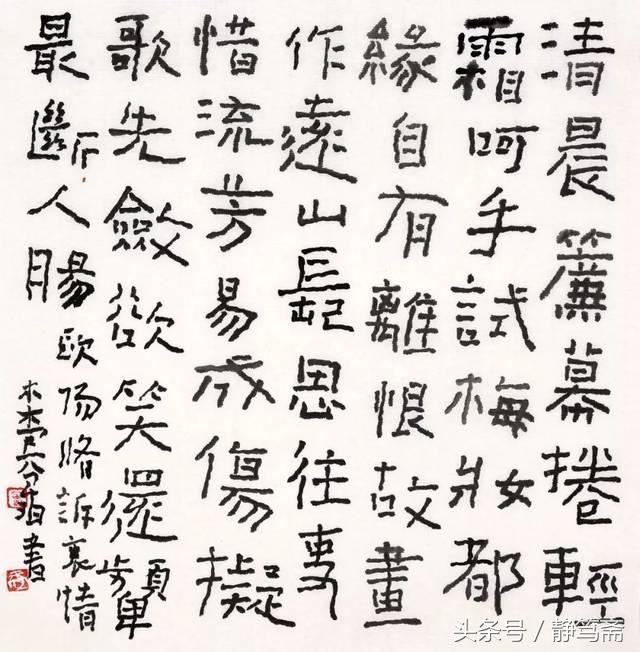 清晨簾幕捲輕
霜呵手試梅妝都
緣自有離恨故畫
作遠山長思往事
惜流芳易成傷擬
歌先斂欲笑還顰
最斷人腸
歐陽脩訴衷情
書
头条号/静笃斋